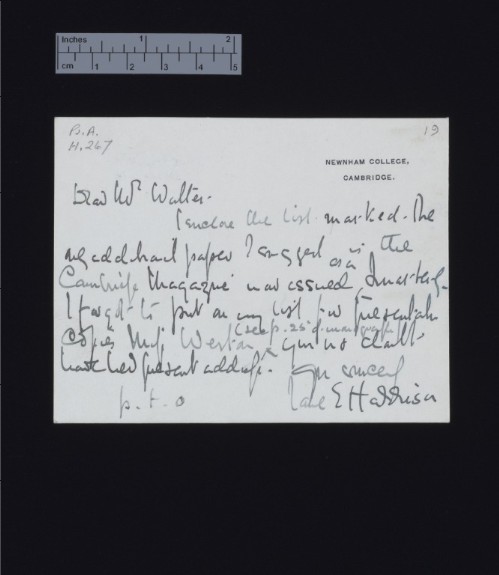 Inches 1 2
cm 1 2 3 4 5
B.A.
H.247
19
NEWNHAM COLLEGE,
CAMBRIDGE.
Dear Mr Walter.
I enclose the list marked. The
only additional paper I suggest is the
Cambridge Magazine now issued
I forgot to put on my list for presentation
(see p. 25 of
copies Miss Weston you no doubt
have her present address.
Yrs sincerely
p. t. o Jane E Harrison